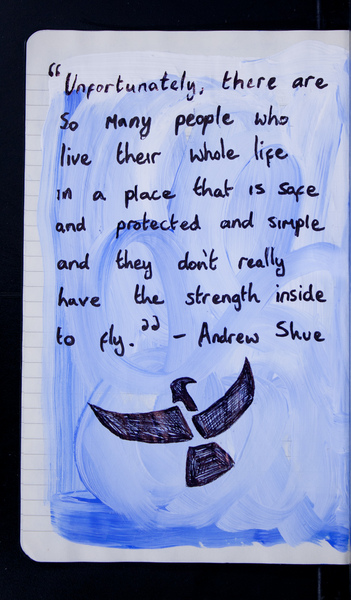 “Unfortunately, there are
so many people who
live their whole life
in a place that is safe
and protected and simple
and they don't really
have the strength inside
to fly.” - Andrew Shue